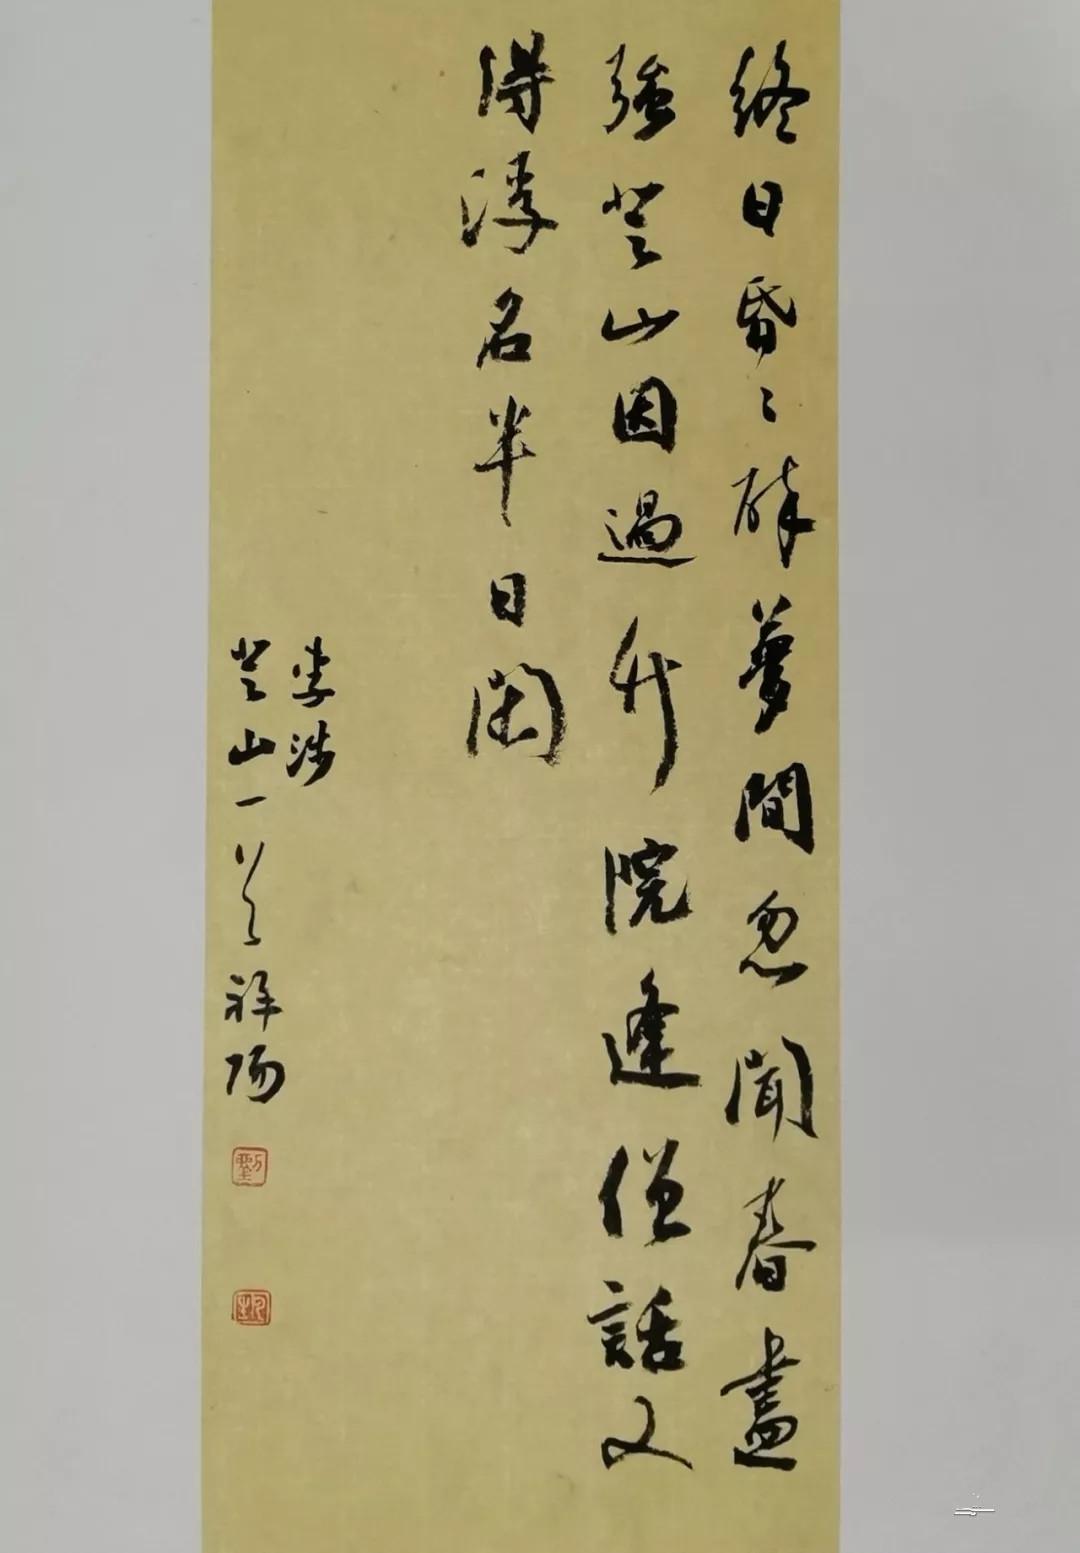 終日昏〻醉夢間忽聞春盡
強登山因過竹院逢僧話又
得浮名半日閑
李涉
登山一首祥陽
劉